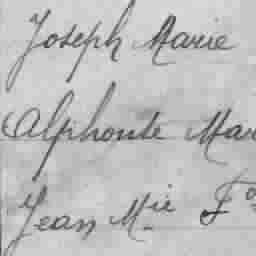 Joseph Marie
Alphonse Mar
Jean M.ie F